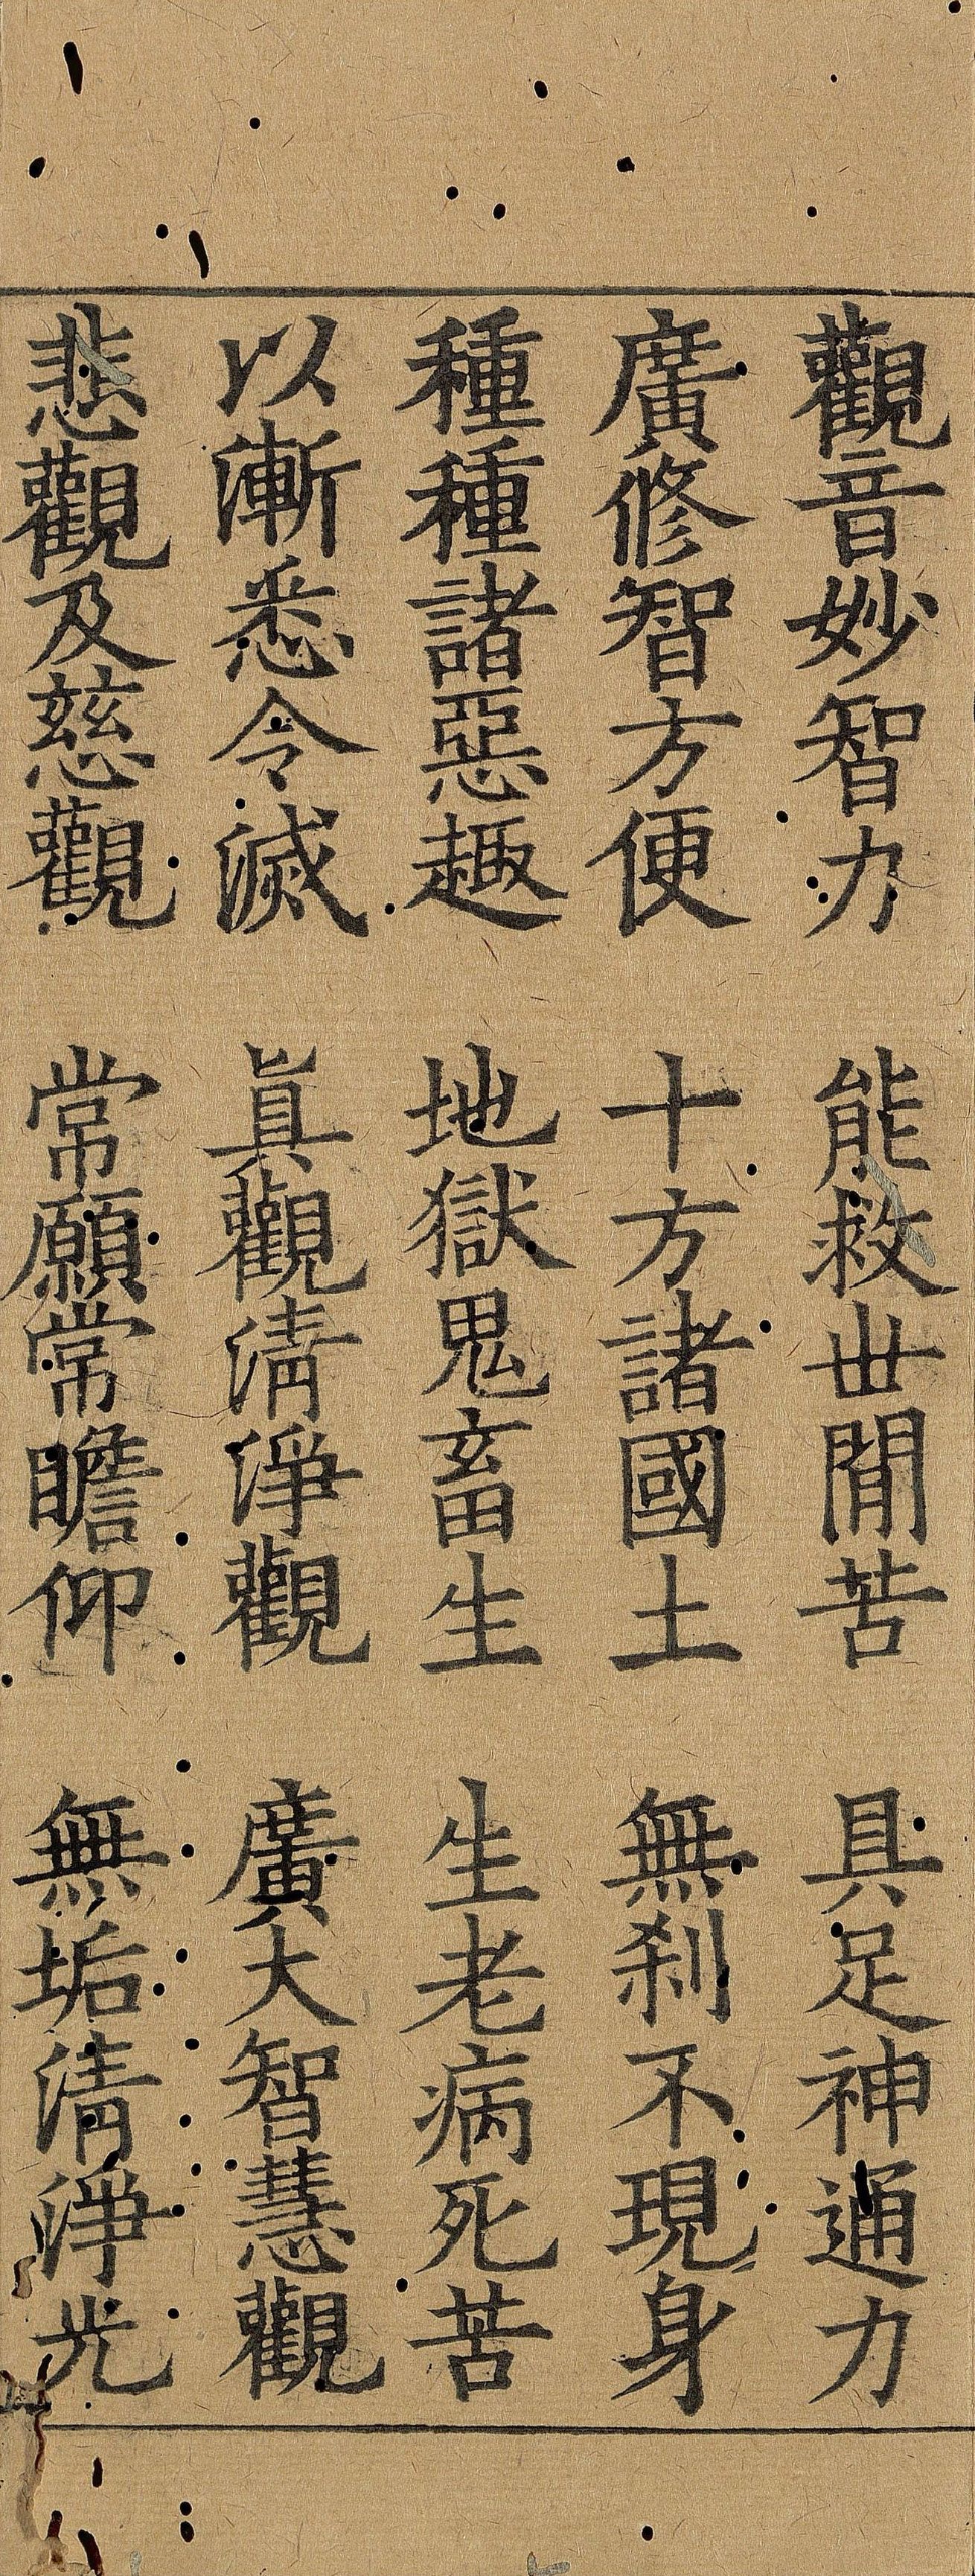 觀音妙智力　能救世閒苦　具足神通力
廣修智方便　十方諸國土　無刹不現身
種種諸惡趣　地獄鬼畜生　生老病死苦
以漸悉令滅　眞觀清淨觀　廣大智慧觀
悲觀及慈觀　常願常瞻仰　無垢清淨光